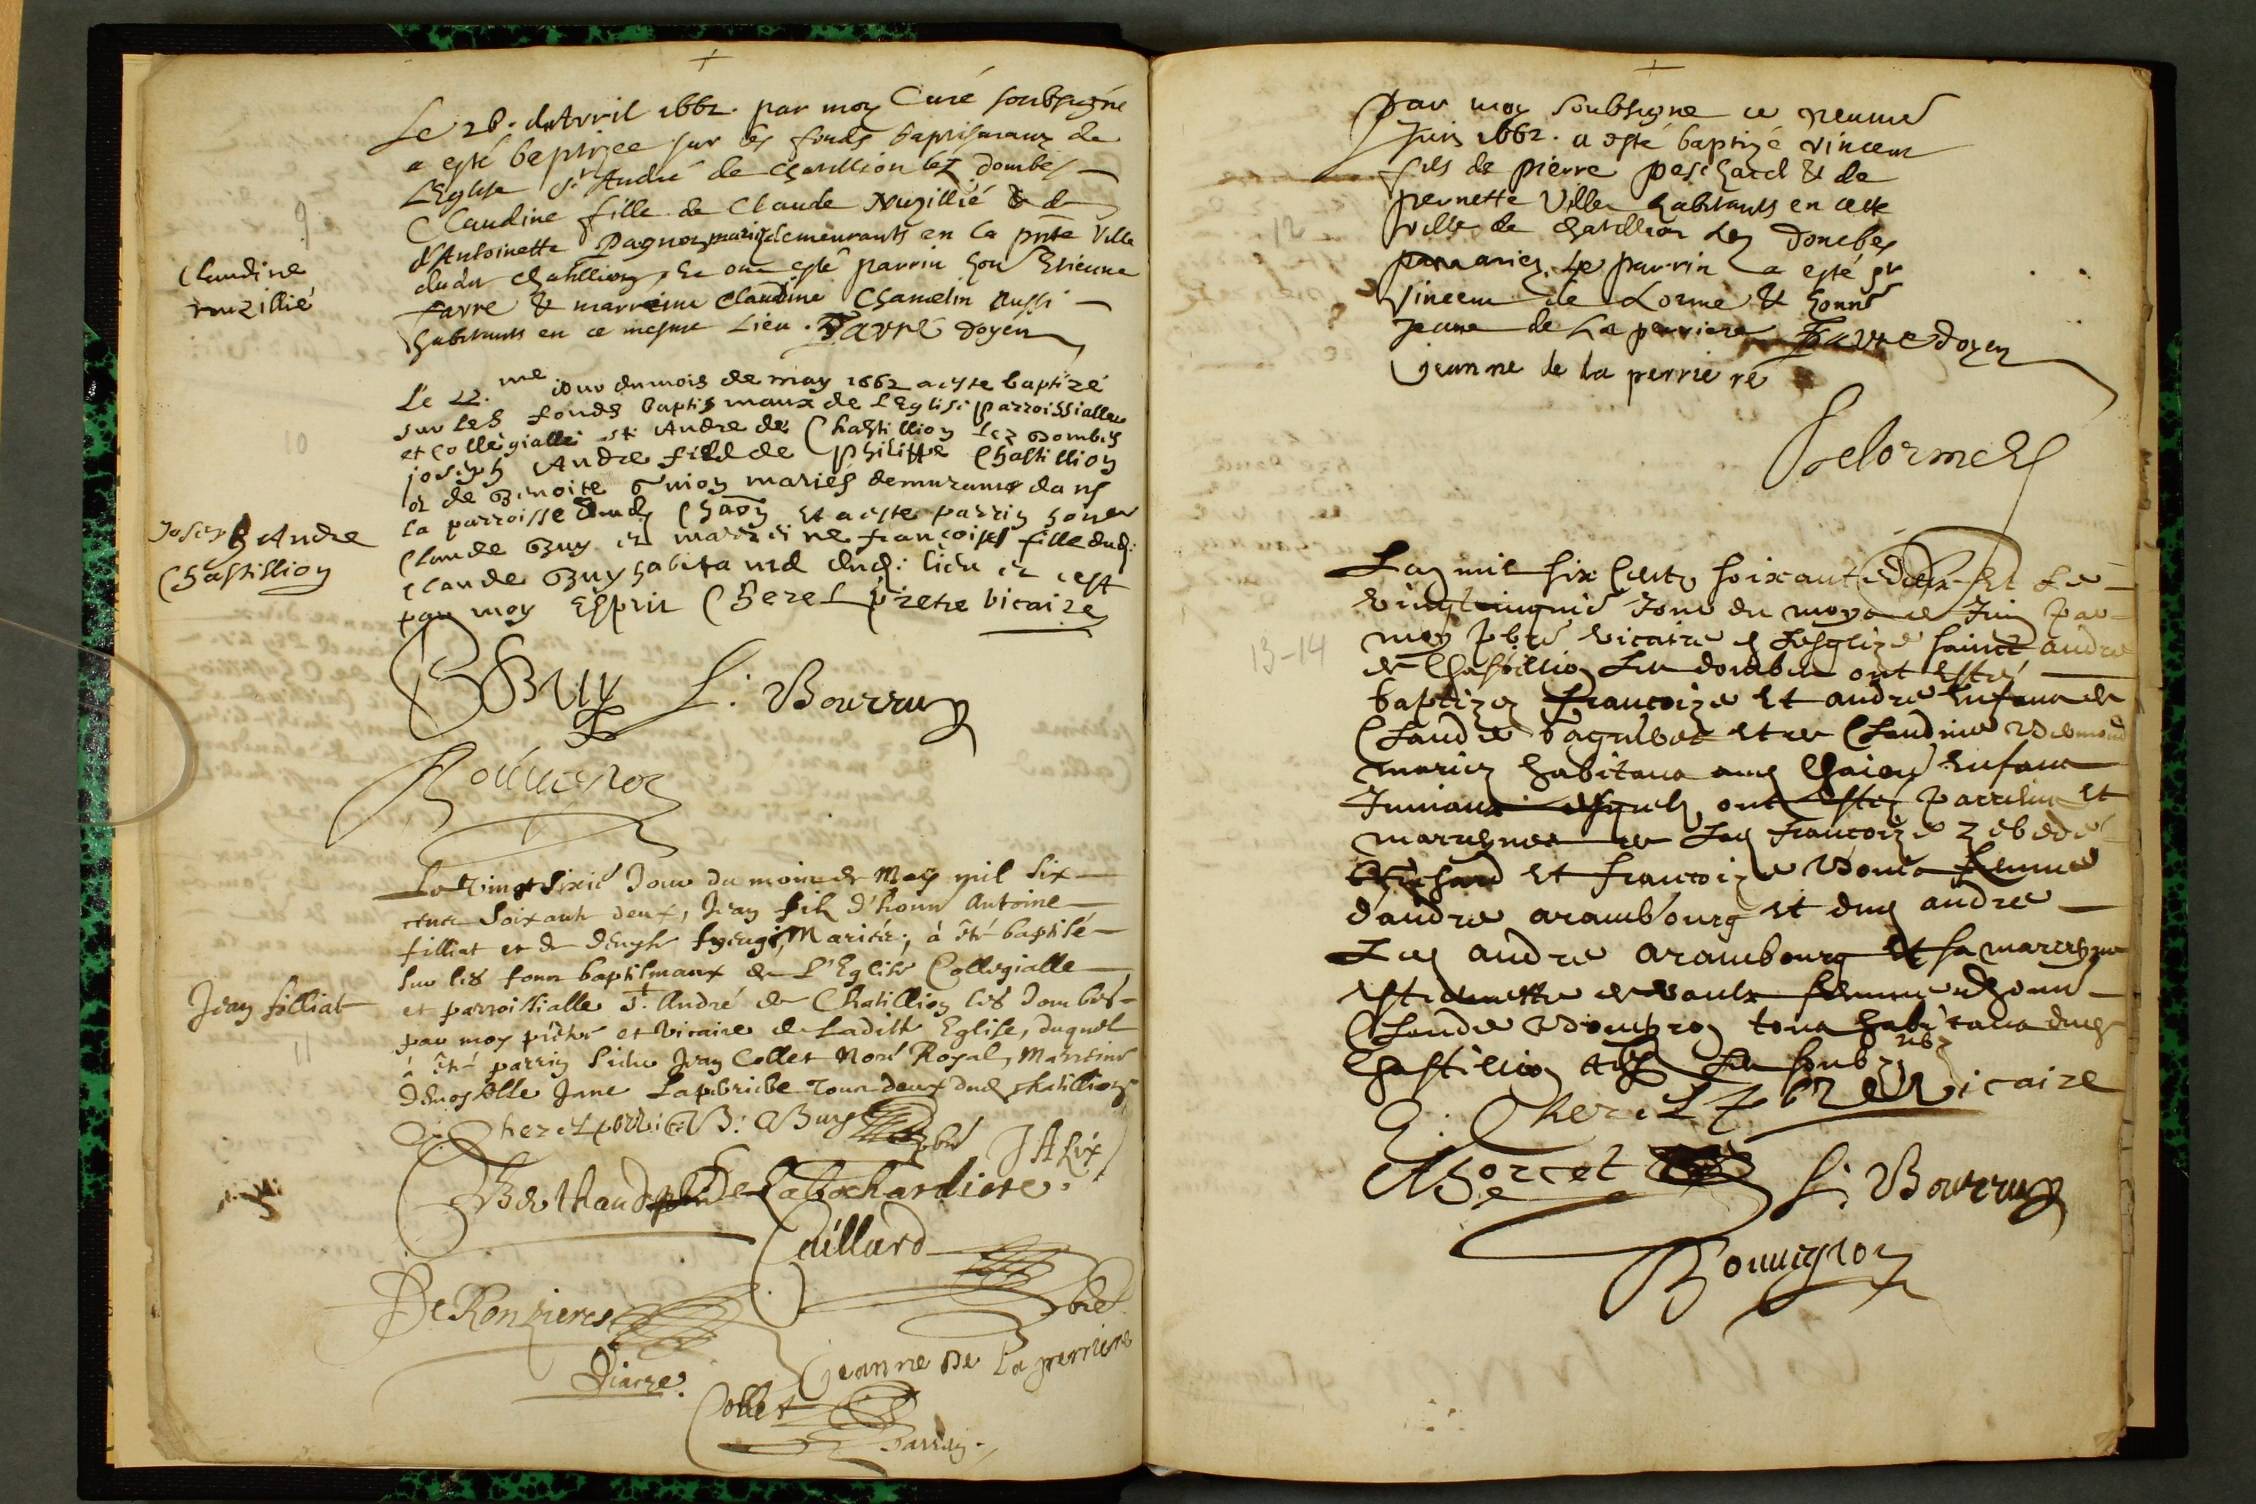 Le 26. d'Avril 1662. par moy Curé soubsigné
a esté baptizee sur les fonds baptismaux de
L'Eglise St André de Chatillion lez Dombes
Claudine fille de Claude Nuzillié & de
d'Antoinette Pagnon mariez demeurants en la pnte Ville
dudit Chatillion, & ont esté parrin hon Estienne
favre & marreine Claudine Chamelin Aussi
habitants en ce mesme Lieu. Favre doyen
9
Claudine
nuzillié
Le 22.me jour du mois de may 1662 a este baptizé
sur les fonds baptismaux de L'Eglise parroissialle
et collegialle st Andre de Chastillion Lez Dombes
joseph Andre filz de Philippe Chastillion
et de Benoite Guion mariés demurants dans
la parroisse dud Chaon et a este parrin honer
Claude Buy et marreine françoise fille dud:
Claude Buy habitand dud: lieu et cest
par moy Esprit Cherel pretre vicaire
10
Joseph Andre
Chastillion
B Buy L: Bourrun
Bouuegnon
Le Vingt sixie Jour du mois de May mil six
cent Soixante deux, Jean fils d'honn Antoine
filliat et de denyse, Mariés; à été baptisé
sur les fons baptismaux de L'Eglise Collegialle
et parroissialle St. André de Chatillion les Dombes
par moy pretre et Vicaire de Ladite Eglise, duquel
à été parrin Sieur Jean Collet Noré Royal, Marreine
demoyselle Jane Laperriere Tous deux dud Chatillion
Jean filliat
11
E: Cherel pbre vic: B: Buy
pbre J Alix
Berthaud pbre De Labochardiere.
Caillard
pbre
De Ronzieres
Diacre.
jeanne De La perriere
Collet
Parrin.
Par moy soubsigne ce neume
Juin 1662. a esté baptizé Vincent
fils de pierre peschard & de
pernette Ville habitants en cette
Ville de Chatillion Lez Dombes
mariez. Le parrin a esté sr
Vincent de Lorme & honne
jeane de La perriere Favre doyen
jeanne de la perriere
12
Delorme
Lan mil six Cents soixante deux et Le
vingt cinquie Jour du moys de Juin par
moy pbre vicaire de Lesglize sainct andre
de Chastillion Les dombes ont esté
baptizez francoize et andre enfans de
Claude et de Claudine
mariez habitans aud Chaion enfans
Jumaux desquelz ont estez parreins et
marreynes de Lad francoize zebede
Bichard et francoize femme
d'andre arambourg et dud andre
Led andre arambourg et sa marreyne
estiennette de vaulx femme dhonn
Claude tous habitans dud
Chastillion Les soubz
13-14
E: Cherel pbre Vicaire
L: Bourrun
Bouuegnon